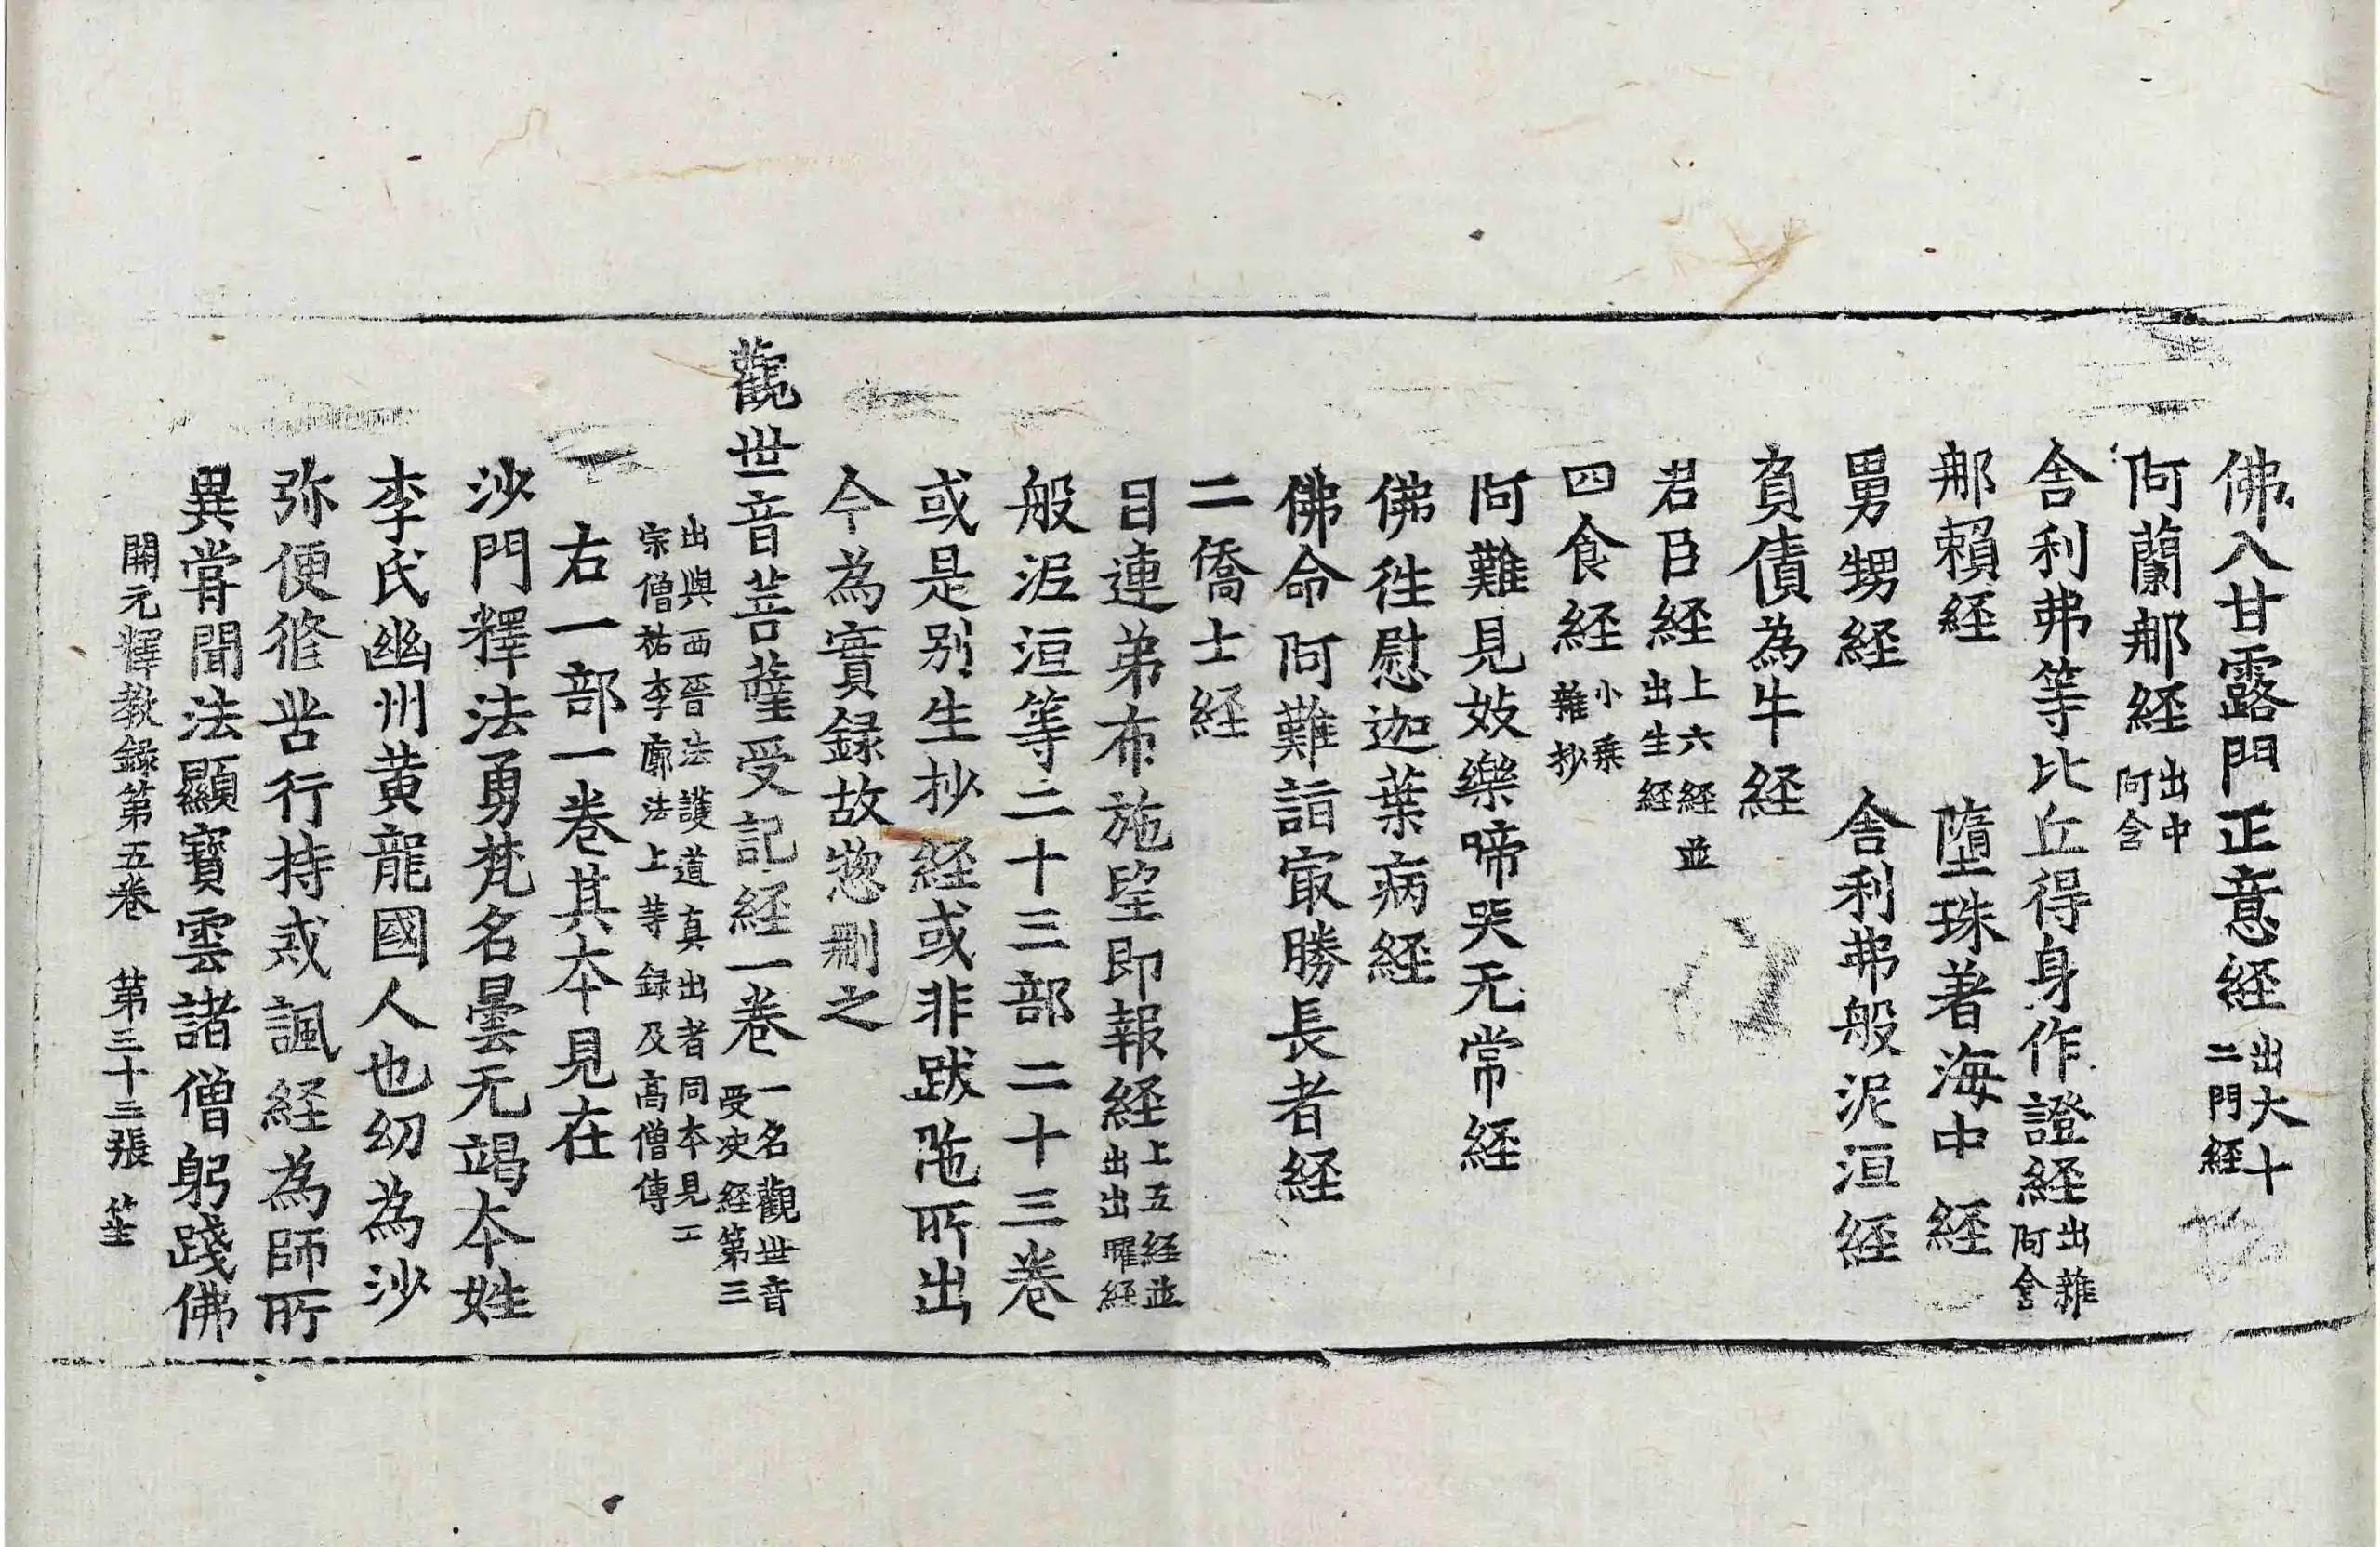 佛八甘露門正意経出大十二門経
阿蘭那経出中阿含
舎利弗等比丘得身作證経出雜阿含
那賴経　墮珠著海中経
舅甥経　舎利弗般泥洹経
負債為牛経
君臣経上六経並出生経
四食経小乗雜抄
阿難見妓樂啼哭无常経
佛徃慰迦葉病経
佛命阿難詣㝡勝長者経
二僑士経
目連弟布施望即報経上五経並出出曜経
般泥洹等二十三部二十三卷
或是别生抄経或非跋陁所出
今為實録故惣刪之
觀世音菩薩受記経一卷一名觀世音受决経第三
出與西晉法護道真出者同本見王宗僧祐李廓法上等録及高僧傳
右一部一卷其本見在
沙門釋法勇梵名曇无竭本姓
李氏幽州黄龍國人也幼為沙
弥便修苦行持戒諷経為師所
異甞聞法顯寶雲諸僧躬踐佛
開元釋教録第五卷　第三十三張　笙